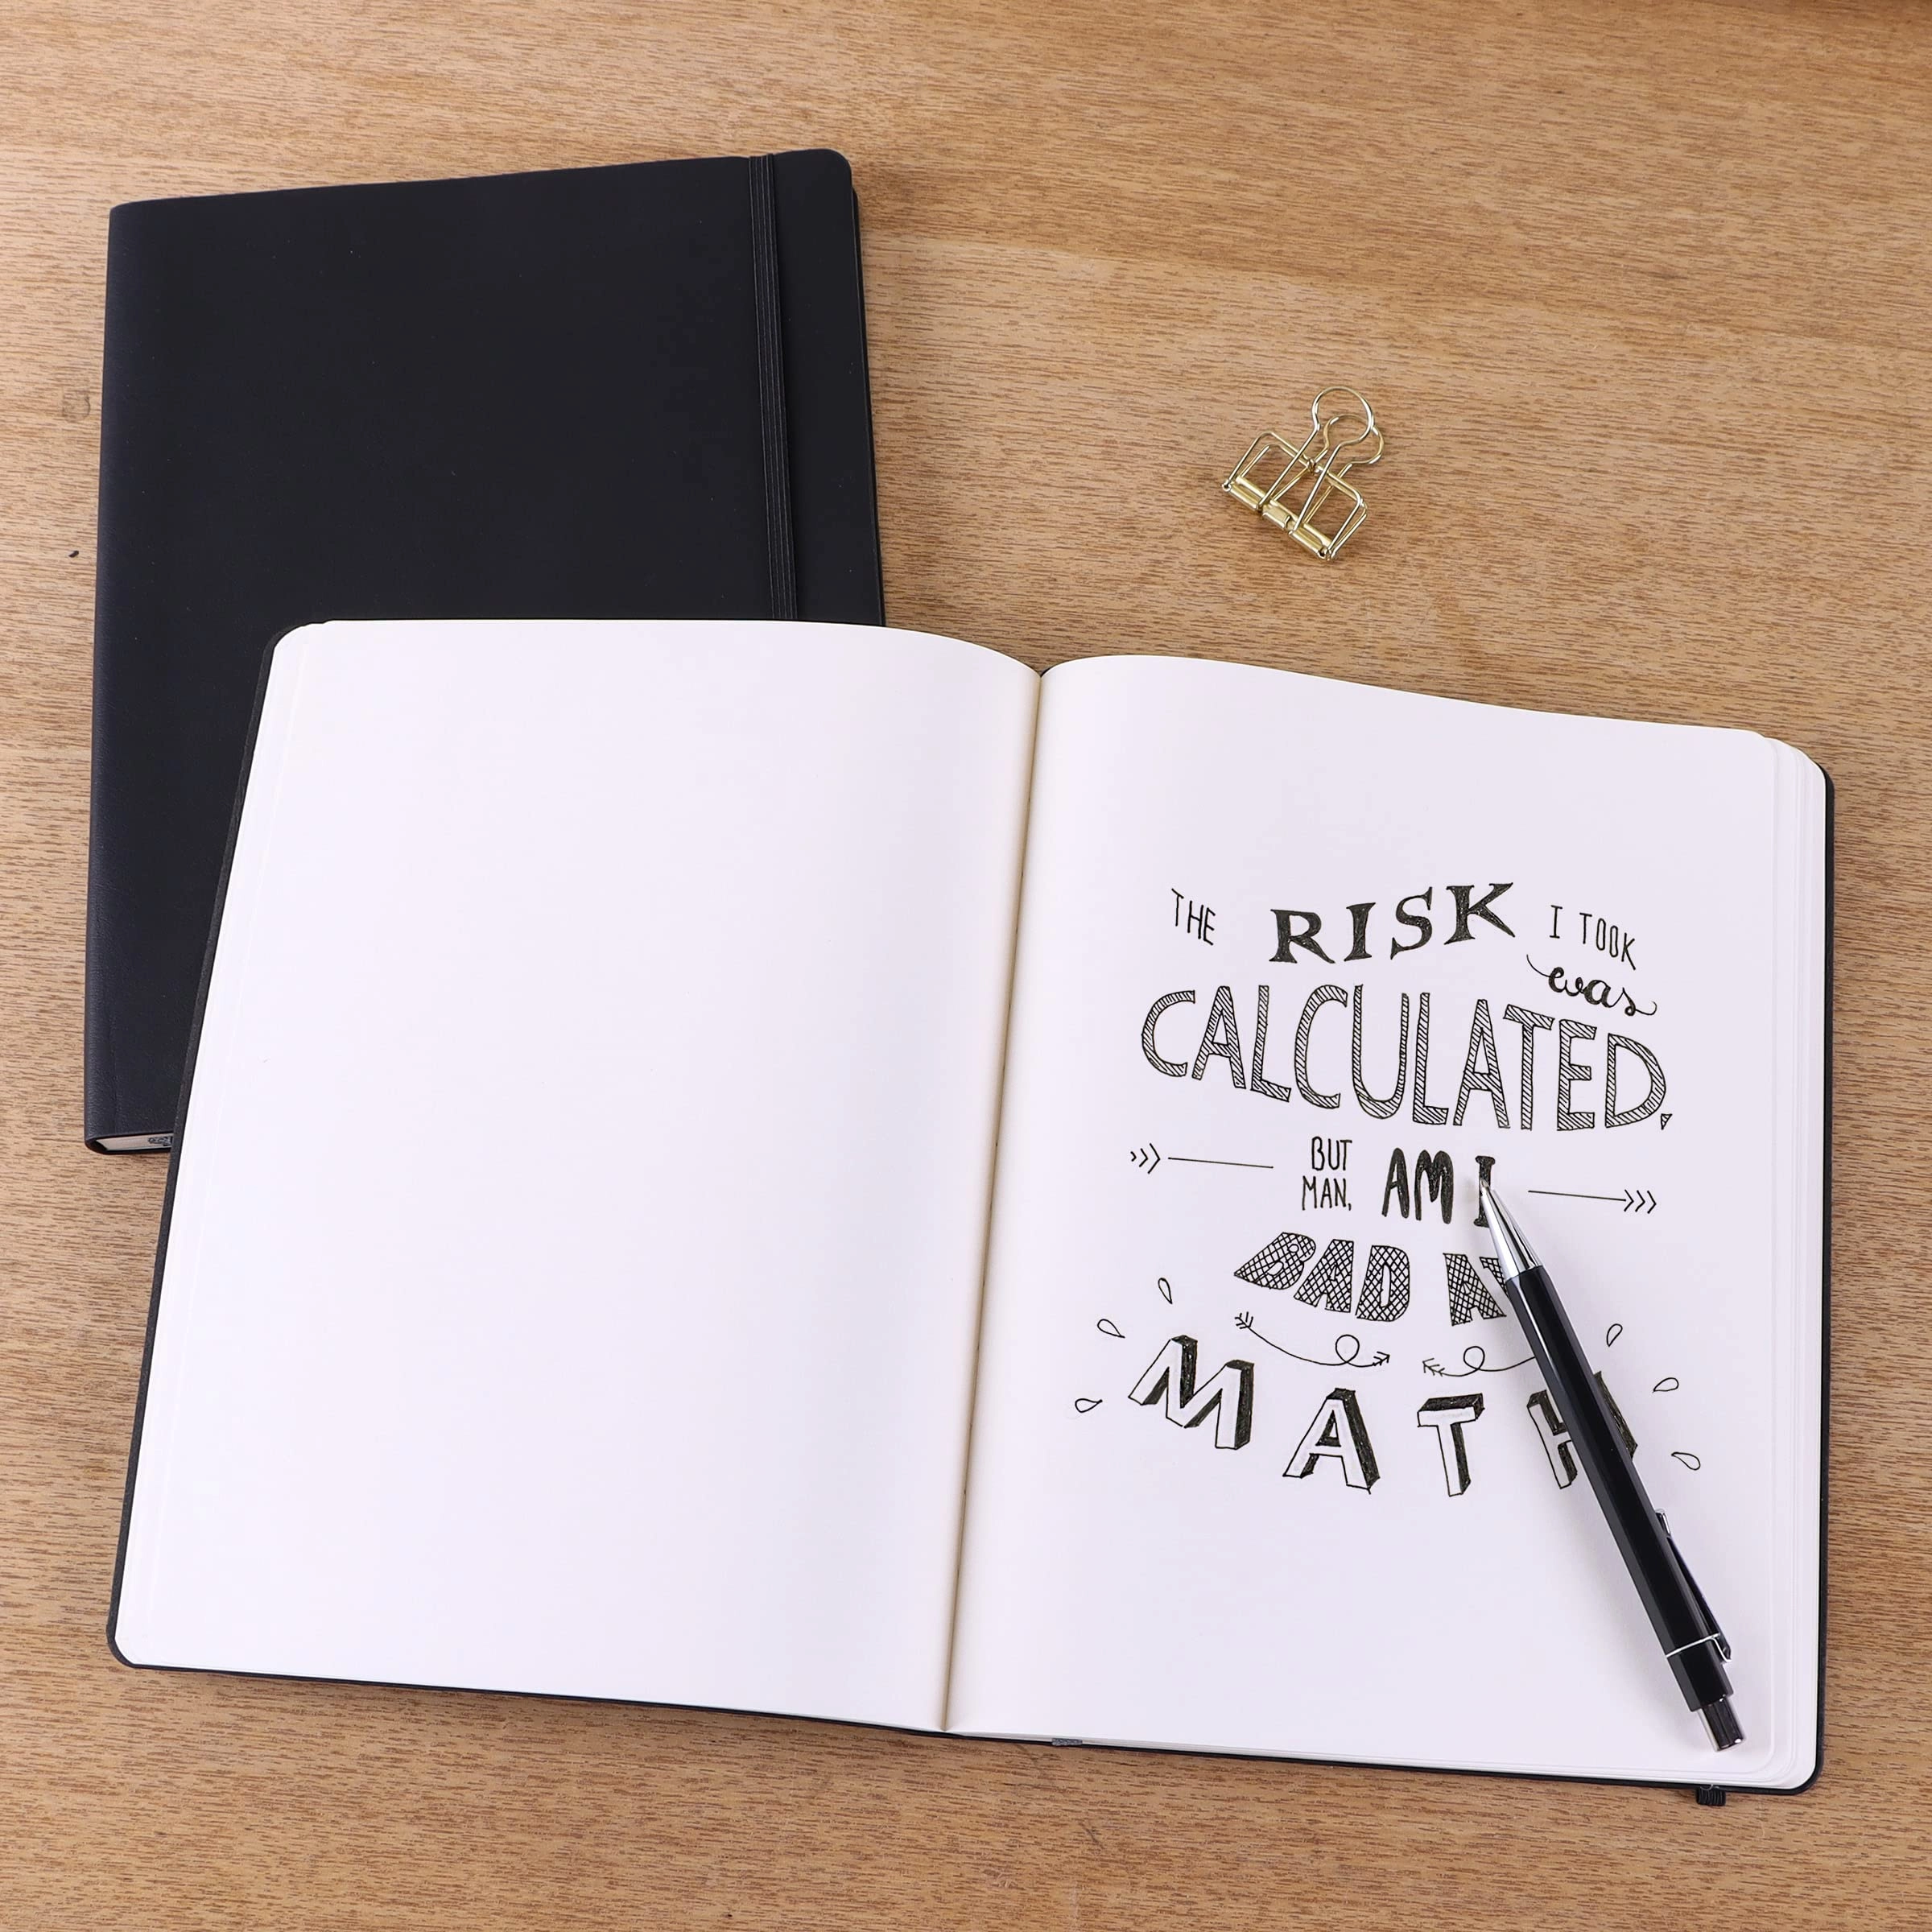 THE RISK I TOOK
was
CALCULATED,
BUT MAN, AM I
BAD AT
MATH